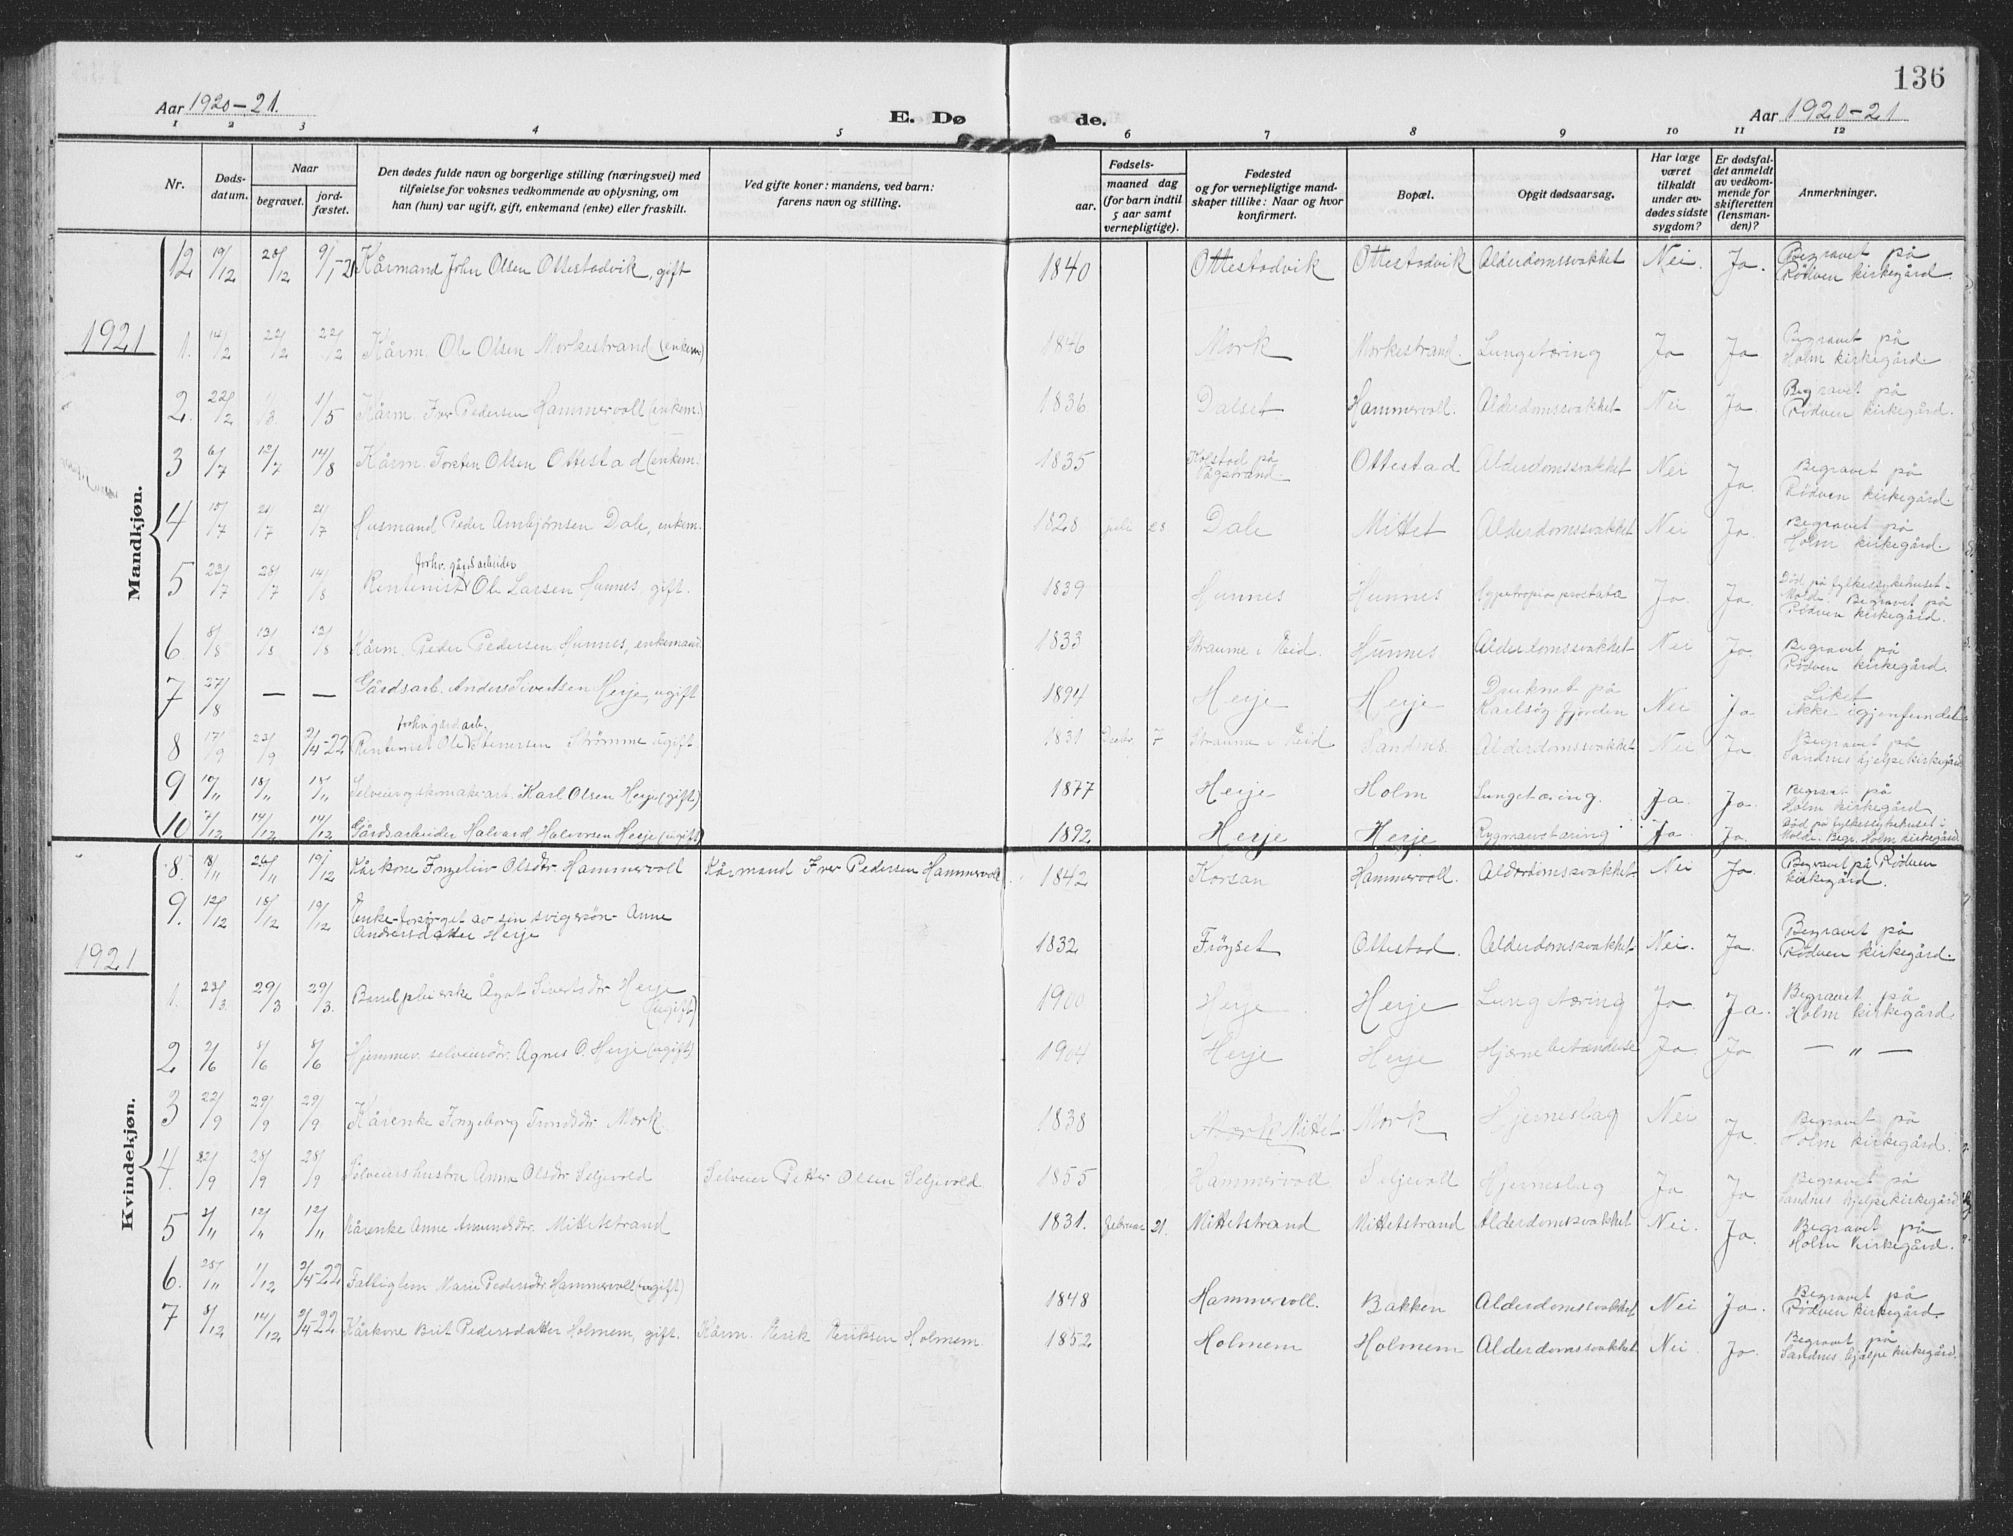 136
Aar 1920-21.
E. Døde.
Aar 1920-21
1 2 3 4 5 6 7 8 9 10 11 12
Nr.
Dødsdatum.
Naar
begravet.
jordfæstet.
Den dødes fulde navn og borgerlige stilling (næringsvei) med
tilføielse for voksnes vedkommende av oplysning, om
han (hun) var ugift, gift, enkemand (enke) eller fraskilt.
Ved gifte koner: mandens, ved barn:
farens navn og stilling.
Fødsels-
aar.
maaned dag
(for barn indtil
5 aar samt
vernepligtige).
Fødested
og for vernepligtige mandskaper tillike: Naar og hvor
konfirmert.
Bopæl.
Opgit dødsaarsag.
Har læge
været
tilkaldt
under avdødes sidste
sygdom?
Er dødsfaldet anmeldt
av vedkommende for
skifteretten
(lensmanden)?
Anmerkninger.
Mandkjøn.
12 19/12 28/12 9/1-21 Kårmand John Olsen Ottestadvik, gift 1840 Ottestadvik Ottestadvik Alderdomssvakhet Nei. Ja. Begravet på Rødven kirkegård.
1921
1. 14/2 22/2 22/2 Kårm. Ole Olsen Morkestrand (enkem) 1846 Mork Morkestrand. Lungetæring Ja Ja Begravet på Holm kirkegård.
2. 22/2 1/3 1/5 Kårm. Iver Pedersen Hammervoll (enkem.) 1836 Dalset Hammervoll. Alderdomssvakhet Nei Ja. Begravet på Rødven kirkegård.
3 6/7 12/7 14/8 Kårm. Torsten Olsen Ottestad (enkem.) 1835 Kolstad på Vågstrand Ottestad Alderdomssvakhet Nei Ja. Begravet på Rødven kirkegård.
4 15/7 21/7 21/7 Husmand Peder Ambjørnsen Dale, enkem. 1828 juli 28 Dale Mittet Alderdomssvakhet Nei Ja. Begravet på Holm kirkegård.
5 23/7 28/7 14/8 Rentenist forhv. gårdsarbeider Ole Larsen Hunnes, gift. 1839 Hunnes Hunnes Hypertropia prostata Ja. Ja. Død på fylkessykehuset i Molde. Begravet på Rødven kirkegård.
6. 8/8 13/8 13/8 Kårm. Peder Pedersen Hunnes, enkemand. 1833 Straume i Eid. Hunnes Alderdomssvakhet Nei Ja. Begravet på Rødven kirkegård.
7 27/8 — — Gårdsarb. Anders Sivertsen Herje, ugift 1894 Herje Herje Druknet på Karlsøyfjorden Nei Ja Liket ikke igjenfundet
8 17/9 23/9 2/4-22 Rentenist forhv. gårdarb. Ole Stenersen Strømme ugift 1831 7 Straume i Eid Sandnes. Alderdomssvakhet Nei Ja Begravet på Sandnes hjelpekirkegård
9 10/11 18/11 18/11 Selveier og skomakerarb. Karl Olsen Herje (gift) 1877 Herje Holm Lungetæring. Ja. Ja. Begravet på Holm kirkegård.
10 7/12 14/12 14/12 Gårdsarbeider Halvard Halvorsen Herje (ugift) 1892 Herje Herje Rygmarvtæring Ja Ja. Død på fylkessykehuset i Molde. Begr. Holm kirkegård
Kvindekjøn.
8. 18/11 26/11 19/12 Kårkone Ingeliv Olsdtr Hammervoll Kårmand Iver Pedersen Hammervoll 1842 Korsan Hammervoll. Alderdomssvakhet Nei Ja. Begravet på Rødven kirkegård.
9. 12/12 18/12 19/12 Enke-forsørget av sin svigersøn- Anne Andersdatter Herje 1832 Frøyset Ottestad. Alderdomssvakhet Nei. Ja. Begravet på Rødven kirkegård.
1921
1. 23/3 29/3 29/3. Barselpleierske Ågot Sivertsdtr Herje (ugift) 1900 Herje Herje Lungetæring Ja Ja. Begravet på Holm kirkegård.
2 2/6 8/6 8/6 Hjemmev. selveierdtr. Agnes O. Herje (ugift) 1904 Herje Herje Hjernebetændelse Ja Ja — „ —
3 22/9 29/9 29/9 Kårenke Ingeborg Trondsdtr Mork 1838 Mork Mittet Mork Hjerneslag Nei Ja. Begravet på Holm kirkegård.
4. 22/9 28/9 28/9 Selveiers hustru Anna Olsdtr Seljevold Selveier Petter Olsen Seljevold 1855 Hammervoll Seljevoll Hjerneslag Ja Ja Begravet på Sandnes hjelpekirkegård
5 2/11 12/11 12/11 Kårenke Anne Amundsdtr. Mittetstrand 1831. februar 21. Mittetstrand Mittetstrand Alderdomssvakhet Nei. Ja. Begravet på Holm kirkegård.
6. 25/11 1/12 2/4-22 Fattiglem Marie Pedersdtr. Hammervoll (ugift) 1848 Hammervoll. Bakken Alderdomssvakhet Nei Ja. Begravet på Rødven kirkegård.
7 8/12 14/12 2/4-22 Kårkone Brit Pedersdatter Holmem, gift. Kårm. Eerik Eeriksen Holmem 1852 Holmem Holmem Alderdomssvakhet Nei Ja. Begravet på Sandnes hjelpekirkegård.